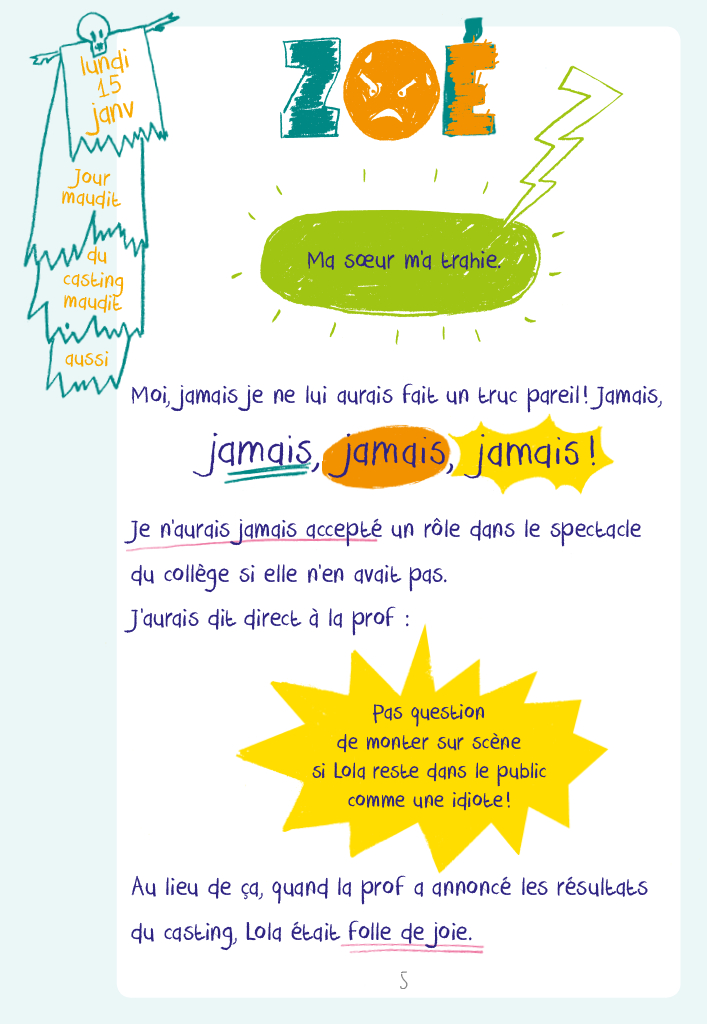 lundi
15
janv
Jour
maudit
du
casting
maudit
aussi
ZOÉ
Ma sœur m'a trahie.
Moi, jamais je ne lui aurais fait un truc pareil ! Jamais,
jamais, jamais, jamais !
Je n'aurais jamais accepté un rôle dans le spectacle
du collège si elle n'en avait pas.
J'aurais dit direct à la prof :
Pas question
de monter sur scène
si Lola reste dans le public
comme une idiote !
Au lieu de ça, quand la prof a annoncé les résultats
du casting, Lola était folle de joie.
5